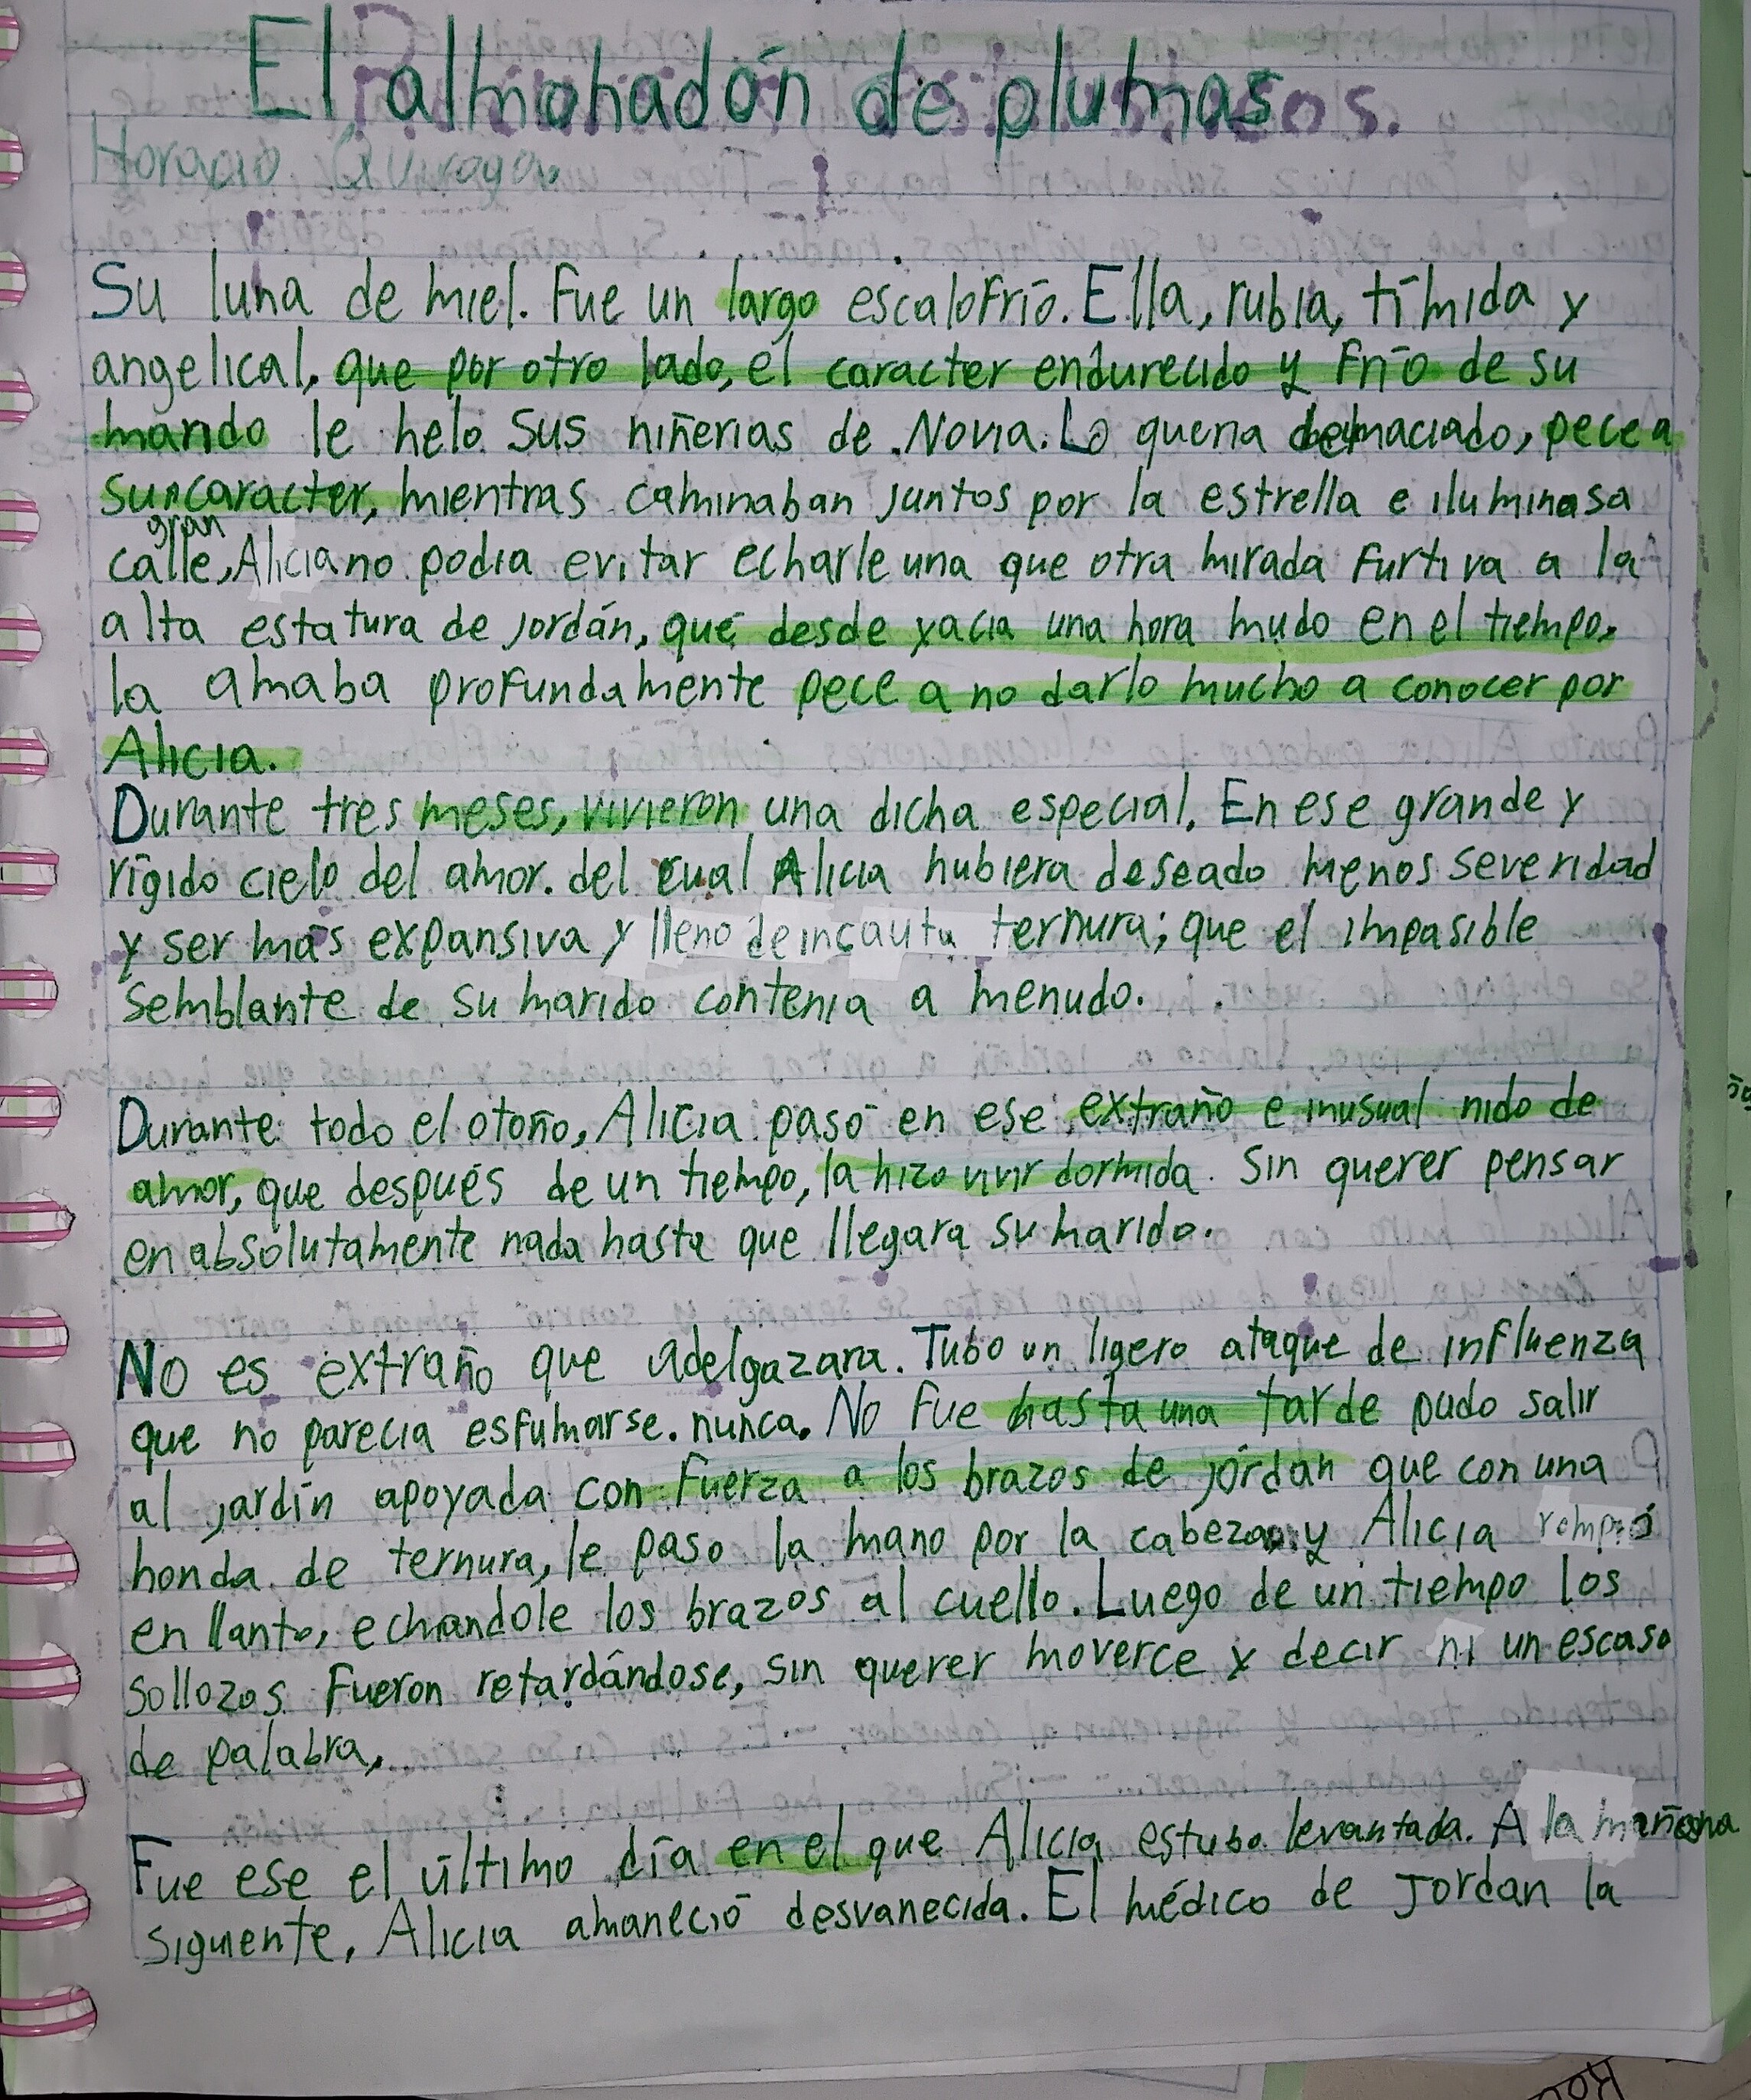 El almohadón de plumas
Horacio Quiroga.
Su luna de miel. Fue un largo escalofrío. Ella, rubia, tímida y
angelical, que por otro lado, el caracter endurecido y frío de su
marido le helo sus niñerias de Novia. Lo queria demaciado, pece a
su caracter, mientras caminaban juntos por la estrella e iluminasa
gran
calle, Alicia no podia evitar echarle una que otra mirada furtiva a la
alta estatura de jordán, que desde yacia una hora mudo en el tiempo,
la amaba profundamente pece a no darlo mucho a conocer por
Alicia.
Durante tres meses, vivieron una dicha especial. En ese grande y
rígido cielo del amor. del cual Alicia hubiera deseado menos severidad
y ser más expansiva y lleno de incauta ternura; que el impasible
semblante de su marido contenia a menudo.
Durante todo el otoño, Alicia pasó en ese extraño e inusual nido de
amor, que después de un tiempo, la hizo vivir dormida. Sin querer pensar
en absolutamente nada hasta que llegara su marido.
No es extraño que adelgazara. Tubo un ligero ataque de influenza
que no parecia esfumarse. nunca. No fue hasta una tarde pudo salir
al jardín apoyada con fuerza a los brazos de jórdan que con una
honda de ternura, le paso la mano por la cabeza y Alicia rompió
en llanto, echandole los brazos al cuello. Luego de un tiempo los
sollozos fueron retardándose, sin querer moverce y decir ni un escaso
de palabra,
Fue ese el último día en el que Alicia estubo levantada. A la mañana
siguiente, Alicia amaneció desvanecida. El médico de Jordan la